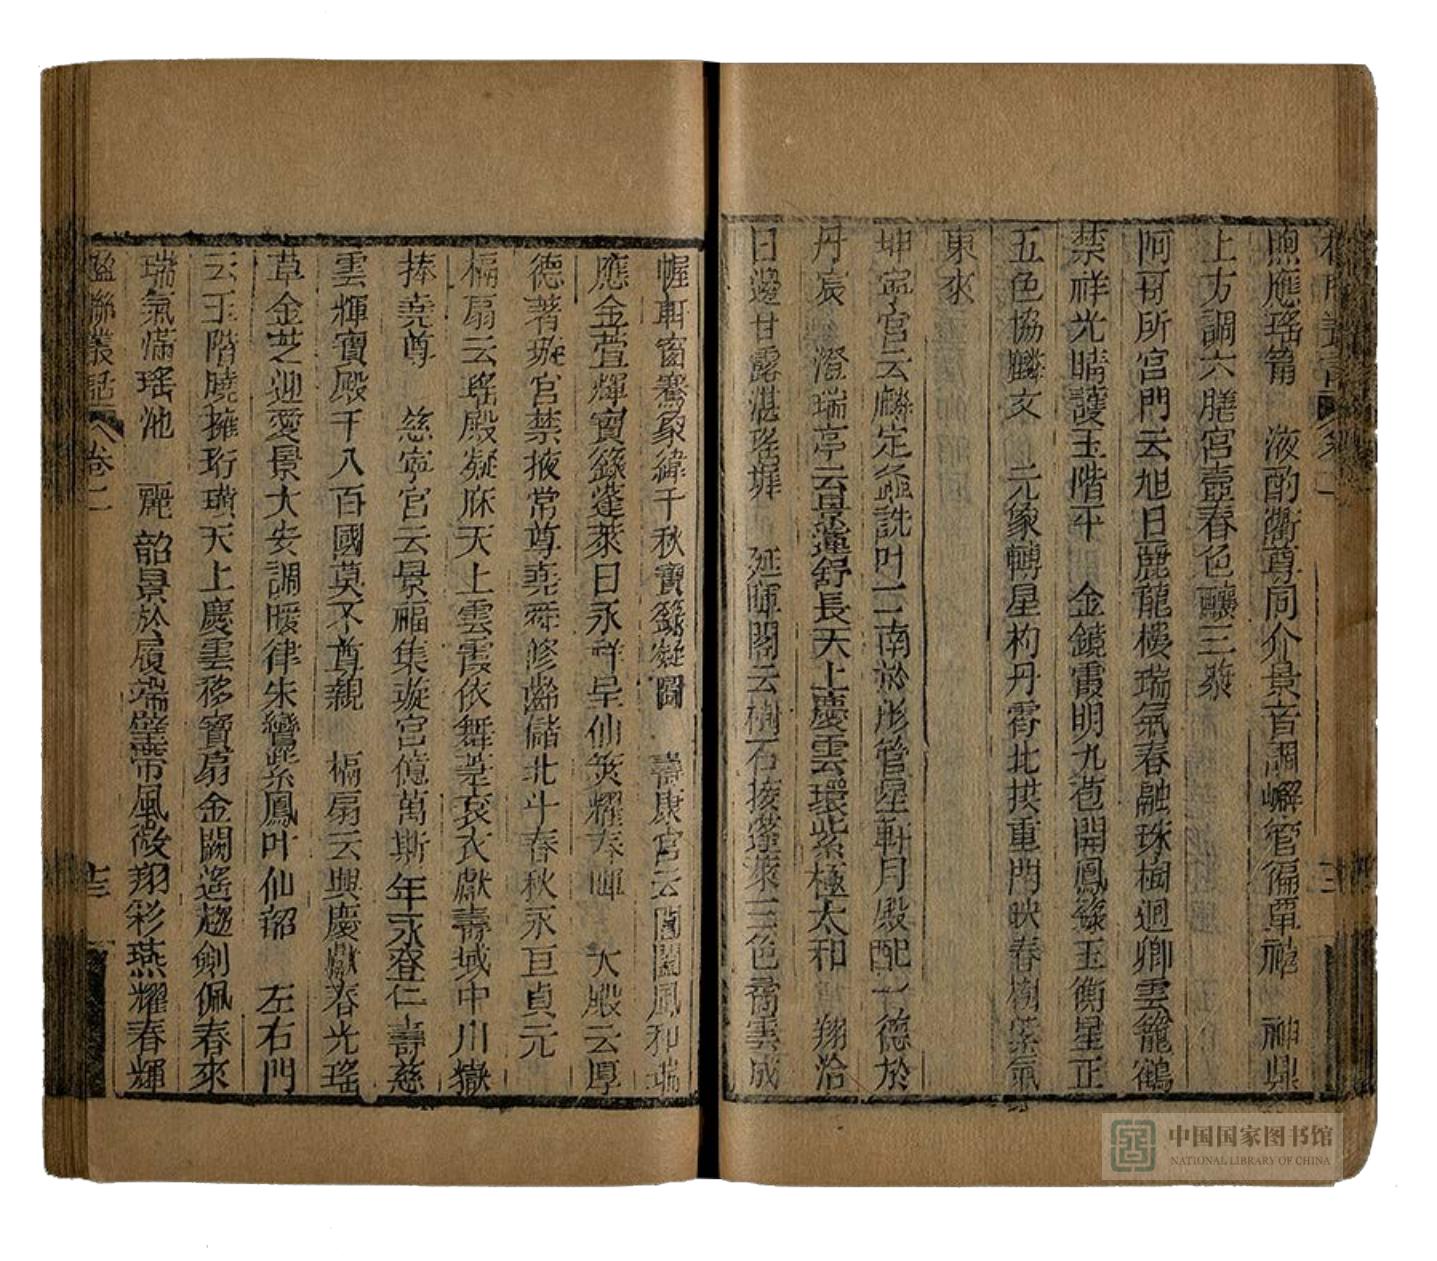 煦應瑤籥　液酌衢尊同介景音調嶰管徧單禧　神鼎
上方調六膳宮壺春色釀三漿
阿哥所宮門云旭日麗龍樓瑞氣春融珠樹迴卿雲籠鶴
禁祥光晴護玉階平　金鏡霞明九苞開鳳籙玉衡星正
五色協麟文　元象轉星杓丹霄北拱重門映春樹紫氣
東來
坤寧宮云麟定螽詵叶二南於彤管星軒月殿配一德於
丹扆　澄瑞亭云景運舒長天上慶雲環紫極太和　翔洽
日邊甘露湛瑤墀　延暉閣云樹石接蓬萊三色矞雲成
幄軒窗騫象緯千秋寶籙凝圖　壽康宮云閶闔風和瑞
應金萱輝寶籙蓬萊日永祥呈仙莢耀春暉　大殿云厚
德著璇宮禁掖常尊堯舜修齡儲北斗春秋永亘貞元
槅扇云瑤殿凝庥天上雲霞依舞綵袞衣獻壽域中川嶽
捧堯尊　慈寧宮云景福集璇宮億萬斯年永登仁壽慈
雲輝寶殿千八百國莫不尊親　槅扇云興慶獻春光瑤
草金芝迎愛景大安調暖律朱鸞紫鳳叶仙韶　左右門
云玉階曉擁珩璜天上慶雲移寶扇金闕遙趨劍佩春來
瑞氣滿瑤池　麗韶景於履端璧帶風微翔彩燕耀春輝
楹聯叢話　卷二　十三
中国国家图书馆
NATIONAL LIBRARY OF CHINA